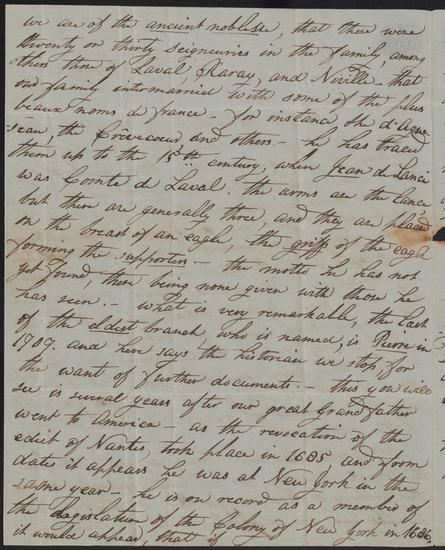 we are of the ancient noblesse, that there were
twenty or thirty seigneuries in the family, among
others those of Laval, Raray, and Niville - that
our family intermarried with some of the plus
beaux noms de france - for instance the d'Ague
sseau, the Crevecoeur and others. - he has traced
them up to the 15th century, when Jean de Lanci
was Comte de Laval. the arms are the lance
but there are generally three, and they are placed
on the breast of an eagle, the griffs of the eagle
forming the supporters - the motto he has not
yet found, there being none given with those he
has seen. - What is very remarkable, the last
of the eldest branch who is named, is Pierre in
1707. and here says the historian we stop, for
the want of further documents. - this you will
see is several years after our great Grandfather
went to America - as the revocation of the
edict of Nantes, took place in 1685 and from
dates it appears he was at New York in the
same year - he is on record as a member of
the Legislation of the Colony of New York in 1686.
it would appear, that if